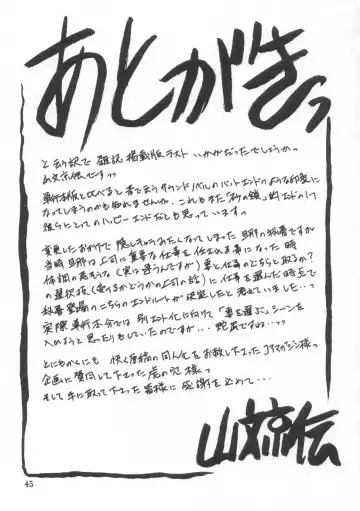 あとがきっ
と云う訳で 雑誌掲載版ラスト いかがだったでしょうかっ
山文京伝ですっ
単行本版と比べると 若干サウンドノベルのバッドエンドのような印象に
なってしまうのかも知れませんが、これもまた「砂の鎖」的エンドの1つ
彼らにとってのハッピーエンドだとも思っていますっ
変更したおかげで 隠しキャラみたいなってしまった 旦那の和善ですが
当時 旦那は上司に重要な仕事を任される事になった時
体調の悪そうな (実は違うんですが) 妻と仕事のどちらを取るか?
の選択肢 (受けるかどうかの上司の話) に仕事を選んだ時点で
登場のこちらのエンドルートが決定したと考えていました…っ
実際 単行本分では 別エンド化に向けて 「妻を選ぶ」シーンを
入れようと思ったりもしていたのですが… 蛇足ですね…っ
とにもかくにも 快く原稿の同人化をお許し下さったJAマガジン様っ
企画に賛同して下さった虎の穴様っ
そして手に取って下さった皆様に 感謝を込めて…
山文京伝
45